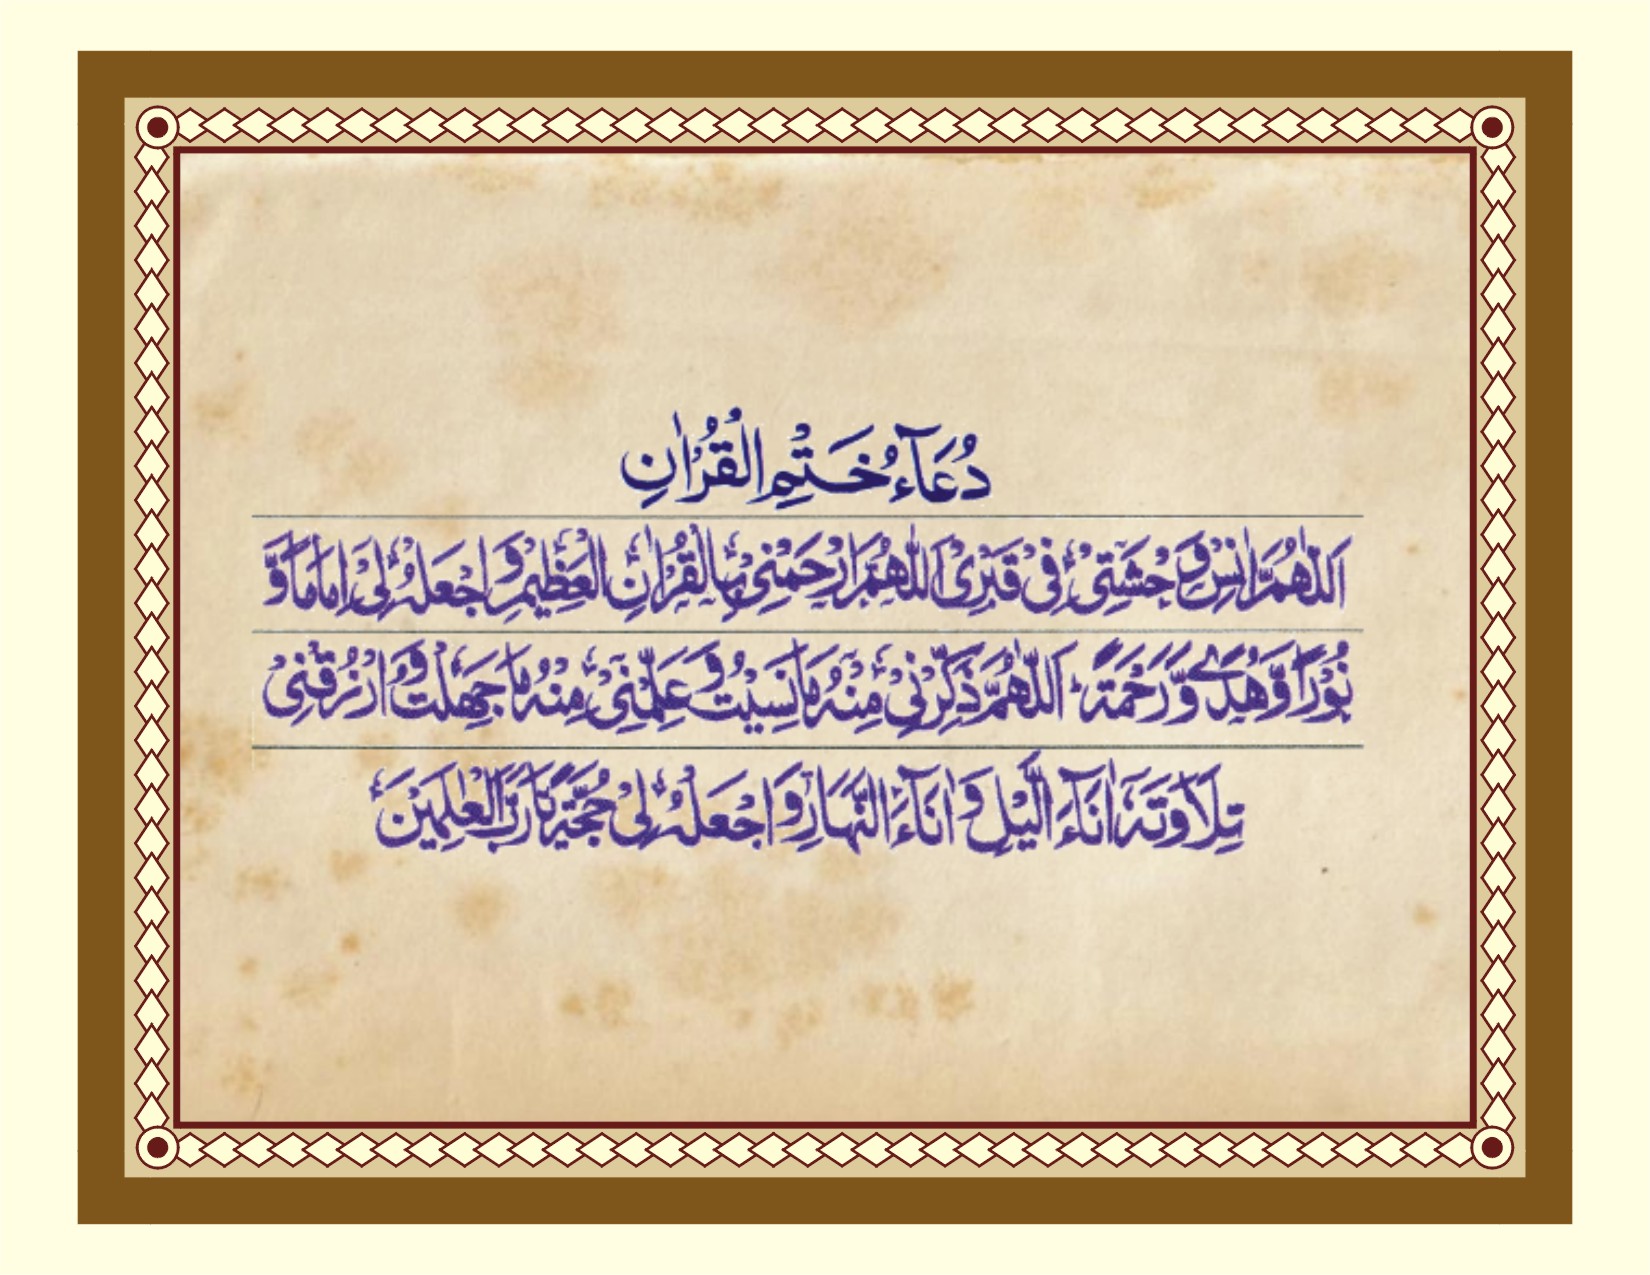 دُعَآءُ خَتْمِ الْقُرْاٰنِ
اَللّٰهُمَّ اٰنِسْ وَحْشَتِیْ فِیْ قَبْرِیْ اَللّٰهُمَّ ارْحَمْنِیْ بِالْقُرْاٰنِ الْعَظِیْمِ وَاجْعَلْهُ لِیْ اِمَامًا وَّ
نُوْرًا وَّهُدًی وَّرَحْمَةً اَللّٰهُمَّ ذَكِّرْنِیْ مِنْهُ مَا نَسِیْتُ وَعَلِّمْنِیْ مِنْهُ مَا جَهِلْتُ وَارْزُقْنِیْ
تِلَاوَتَهٗ اٰنَآءَ الَّیْلِ وَاٰنَآءَ النَّهَارِ وَاجْعَلْهُ لِیْ حُجَّةً یَّا رَبَّ الْعٰلَمِیْنَ